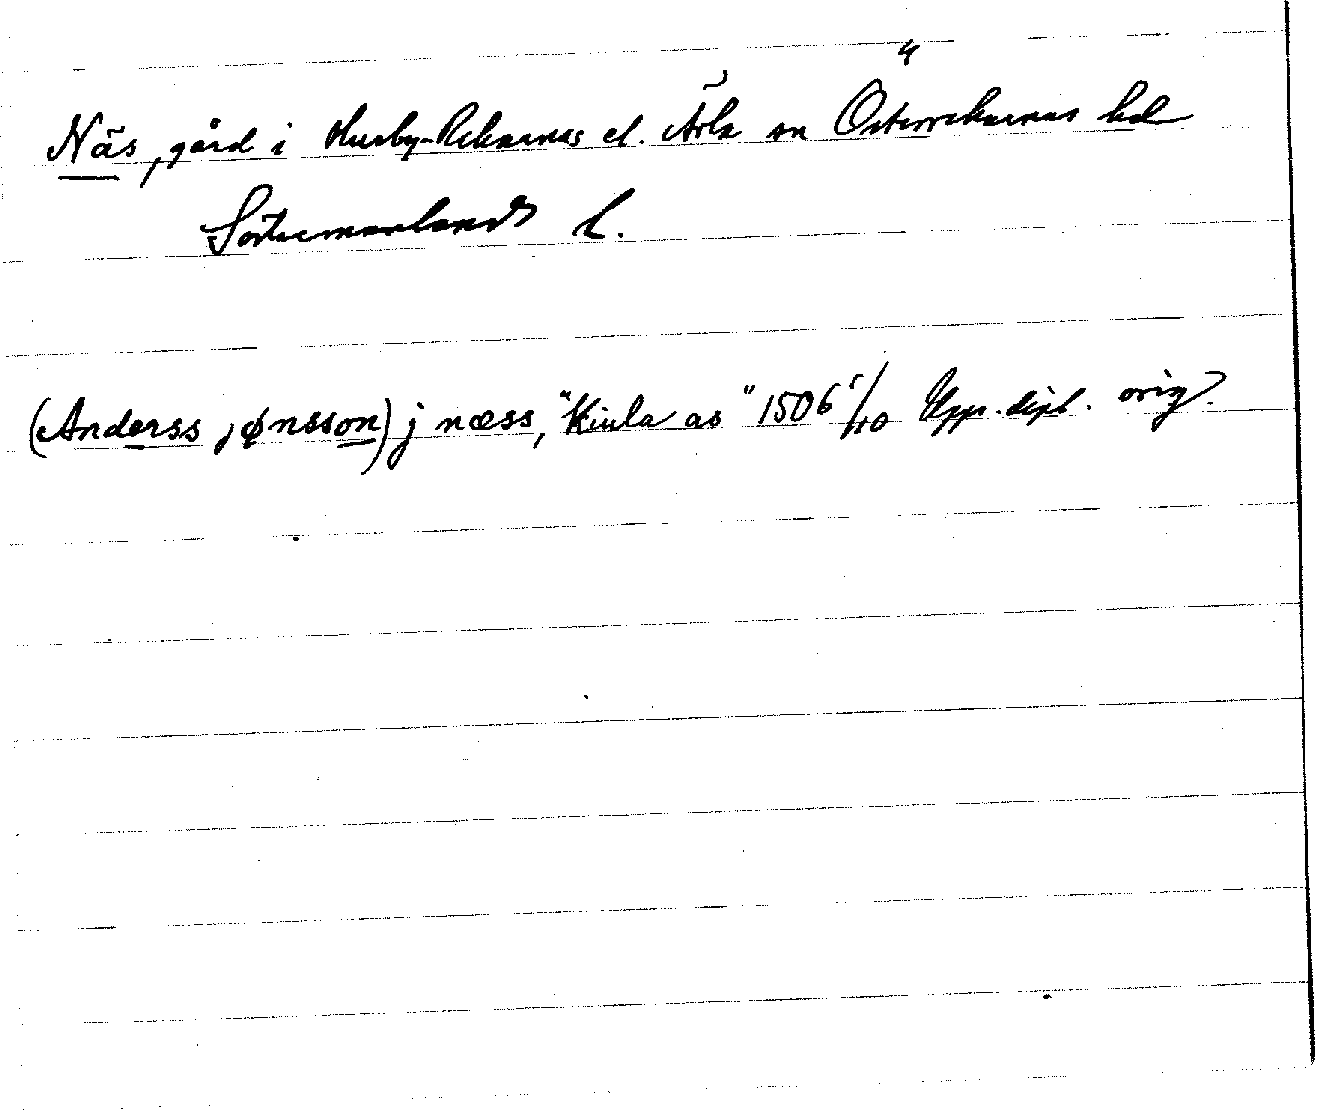 Näs, gård i Husby-Rekarnas el. Ärla sn Österrekarnas hd
Södermanlands l.
(Anderss jønsson) j næss, "Kiula as" 1506 5/10 Upps. dipl. orig.